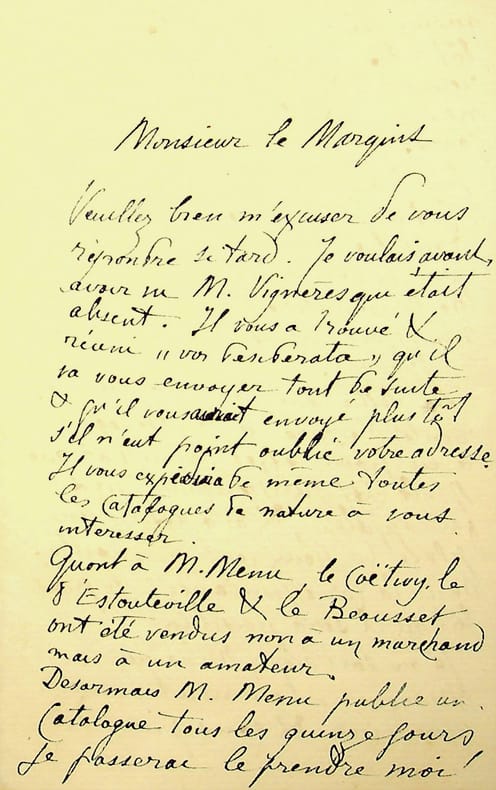 Monsieur le Marquis
Veuillez bien m'excuser de vous
répondre si tard. Je voulais avant,
avoir vu M. Vignères qui était
absent. Il vous a trouvé &
réuni „ vos desiderata „ qu'il
va vous envoyer tout de suite
& qu'il vous aurait envoyé plus tôt
s'il n'eut point oublié votre adresse.
Il vous expédiera de même toutes
les catalogues de nature à vous
interesser.
Quant à M. Menu, le Coëtivy, le
d'Estouteville & le Beausset
ont été vendus non à un marchand
mais à un amateur.
Desormais M. Menu publie un
Catalogue tous les quinze jours
je passerai le prendre moi